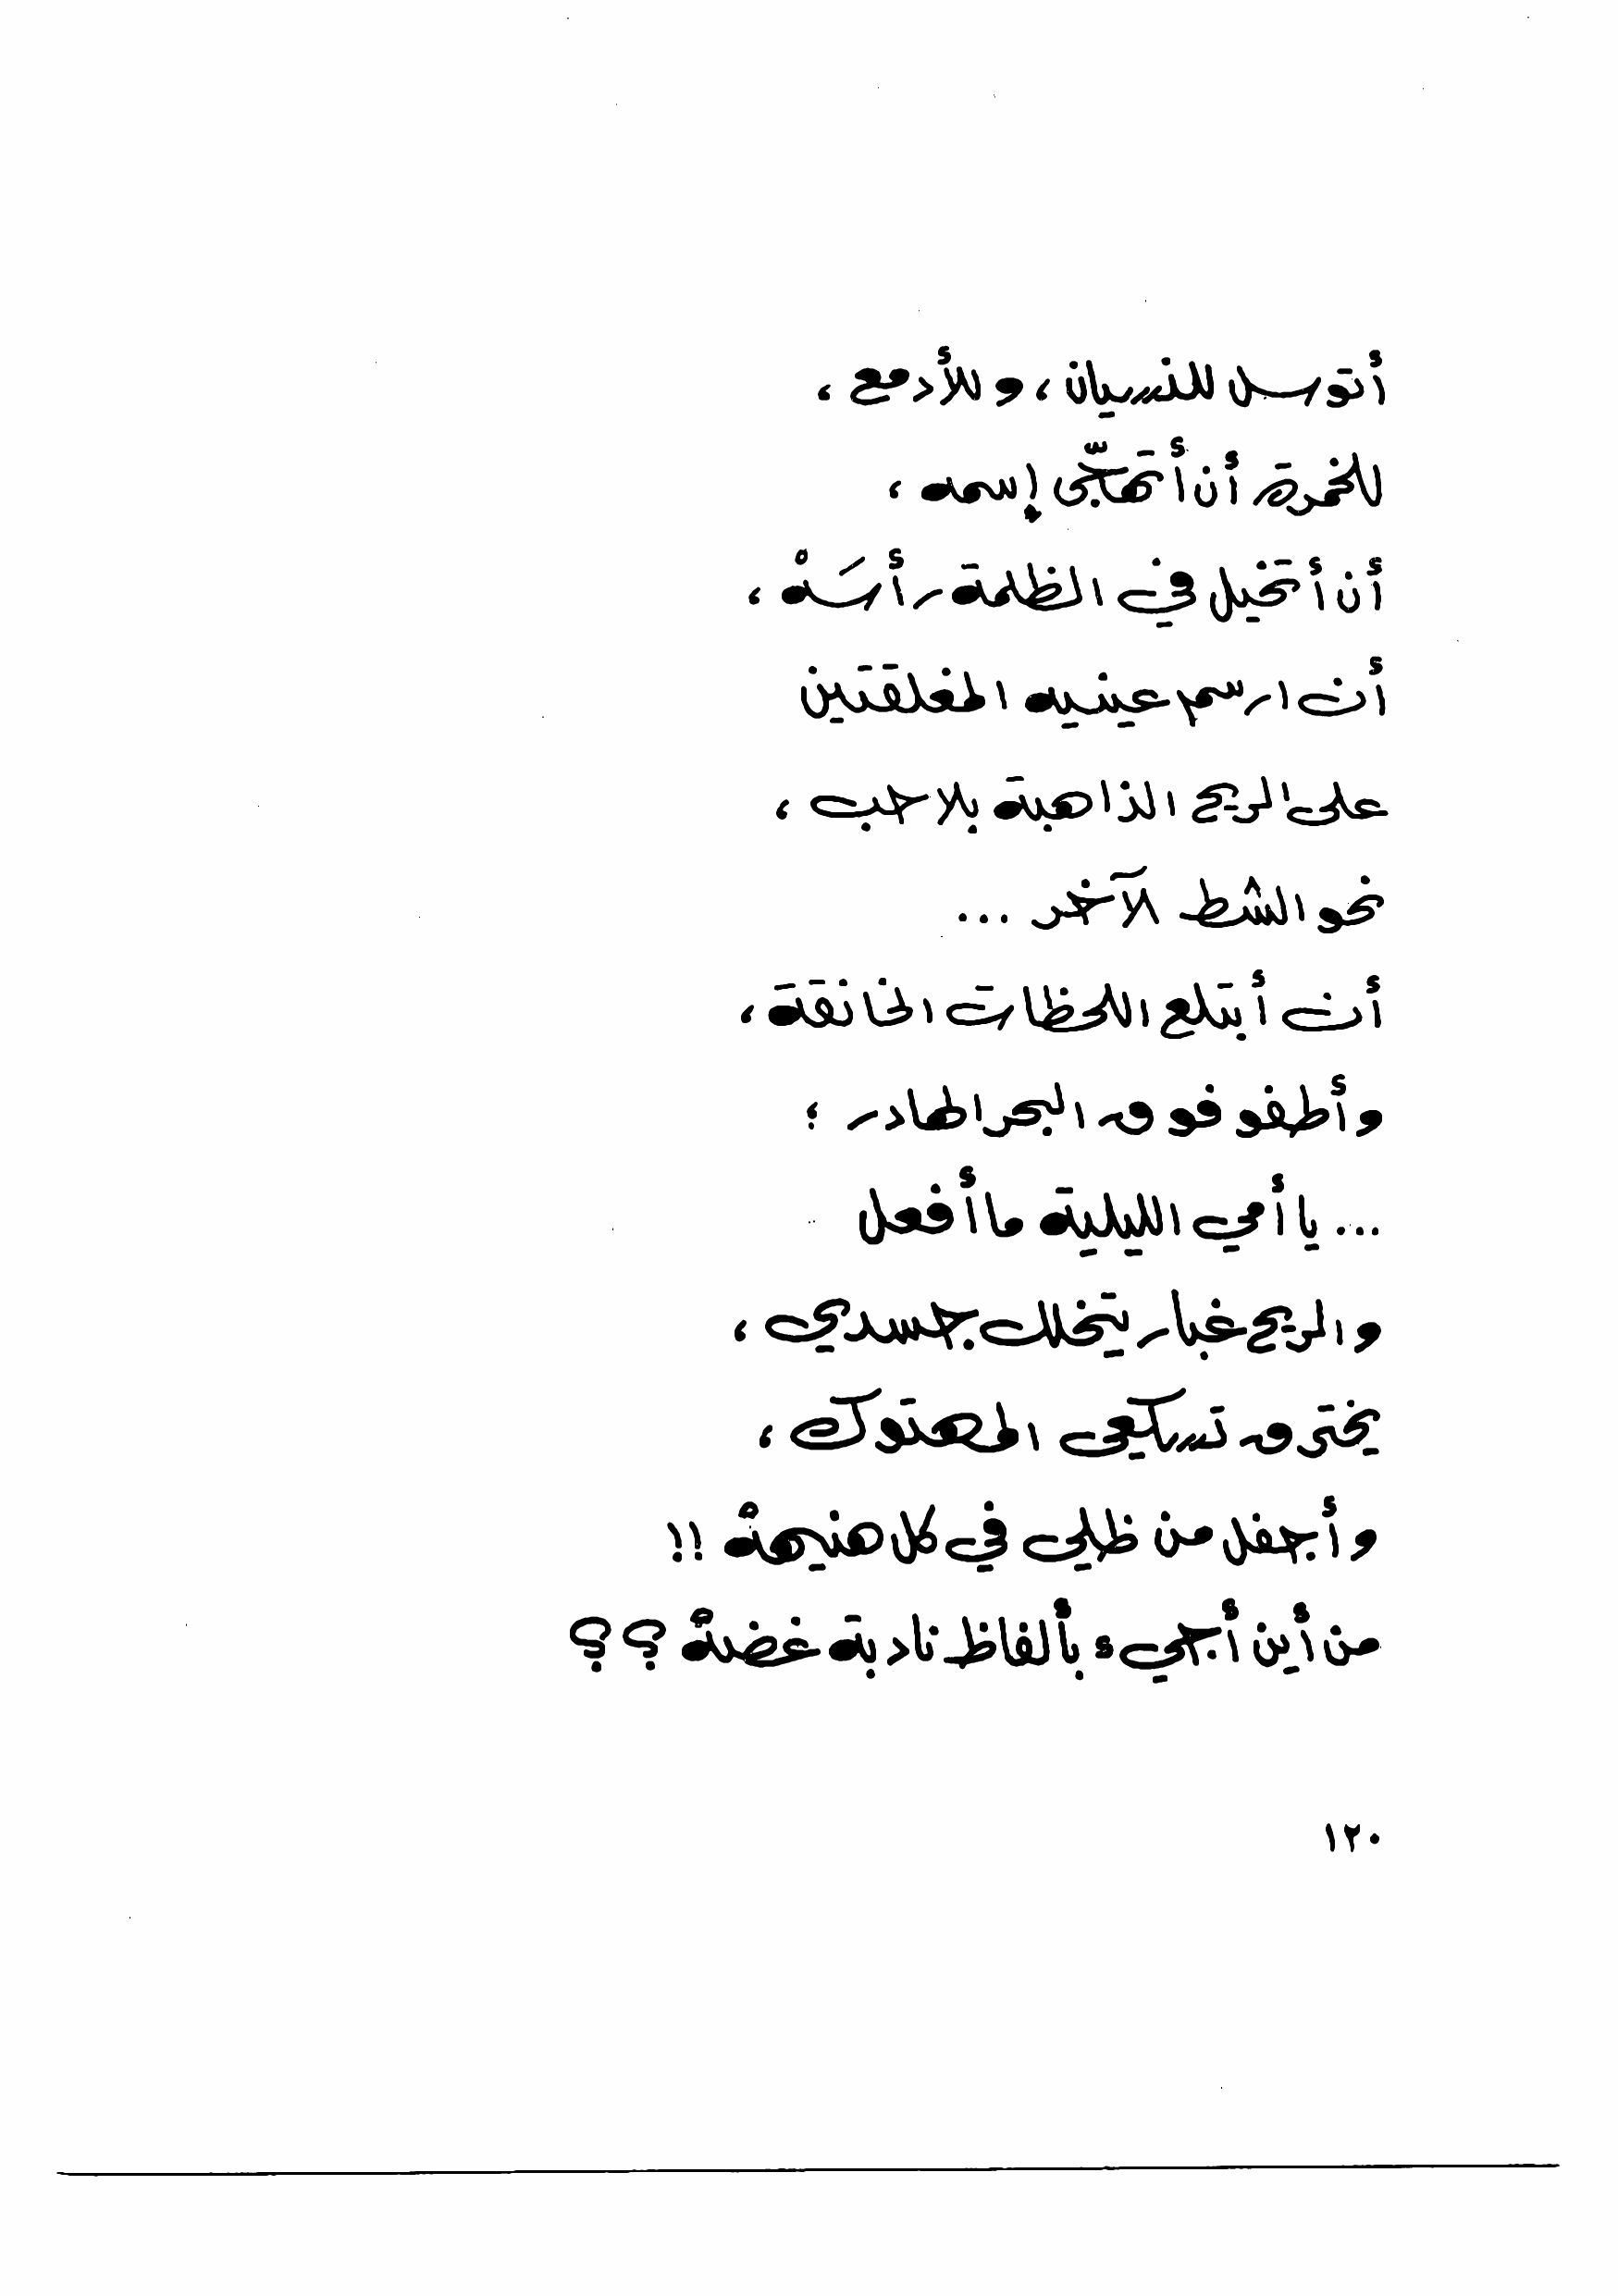 أتوسل للنسيان ، وللأدمع ،
للخمرة أن أتهجّى إسمه ،
أن أتخيل في الظلمة رأسَهْ ،
أن ارسم عينيه المغلقتين
على الريح الذاهبة بلا حب ،
نحو الشط الآخر ...
أن أبتلع اللحظات الخانقة ،
وأطفو فوق البحر الهادر ؛
... يا أمي الليلية ما أفعل
والريح غبار يتخلل جسدي ،
يخترق تسكعي المهتوك ،
وأجفل من ظلي في كل هنيهةْ !!
من أين أجيء بألفاظ نادبة غضبةْ ؟ ؟
١٢٠